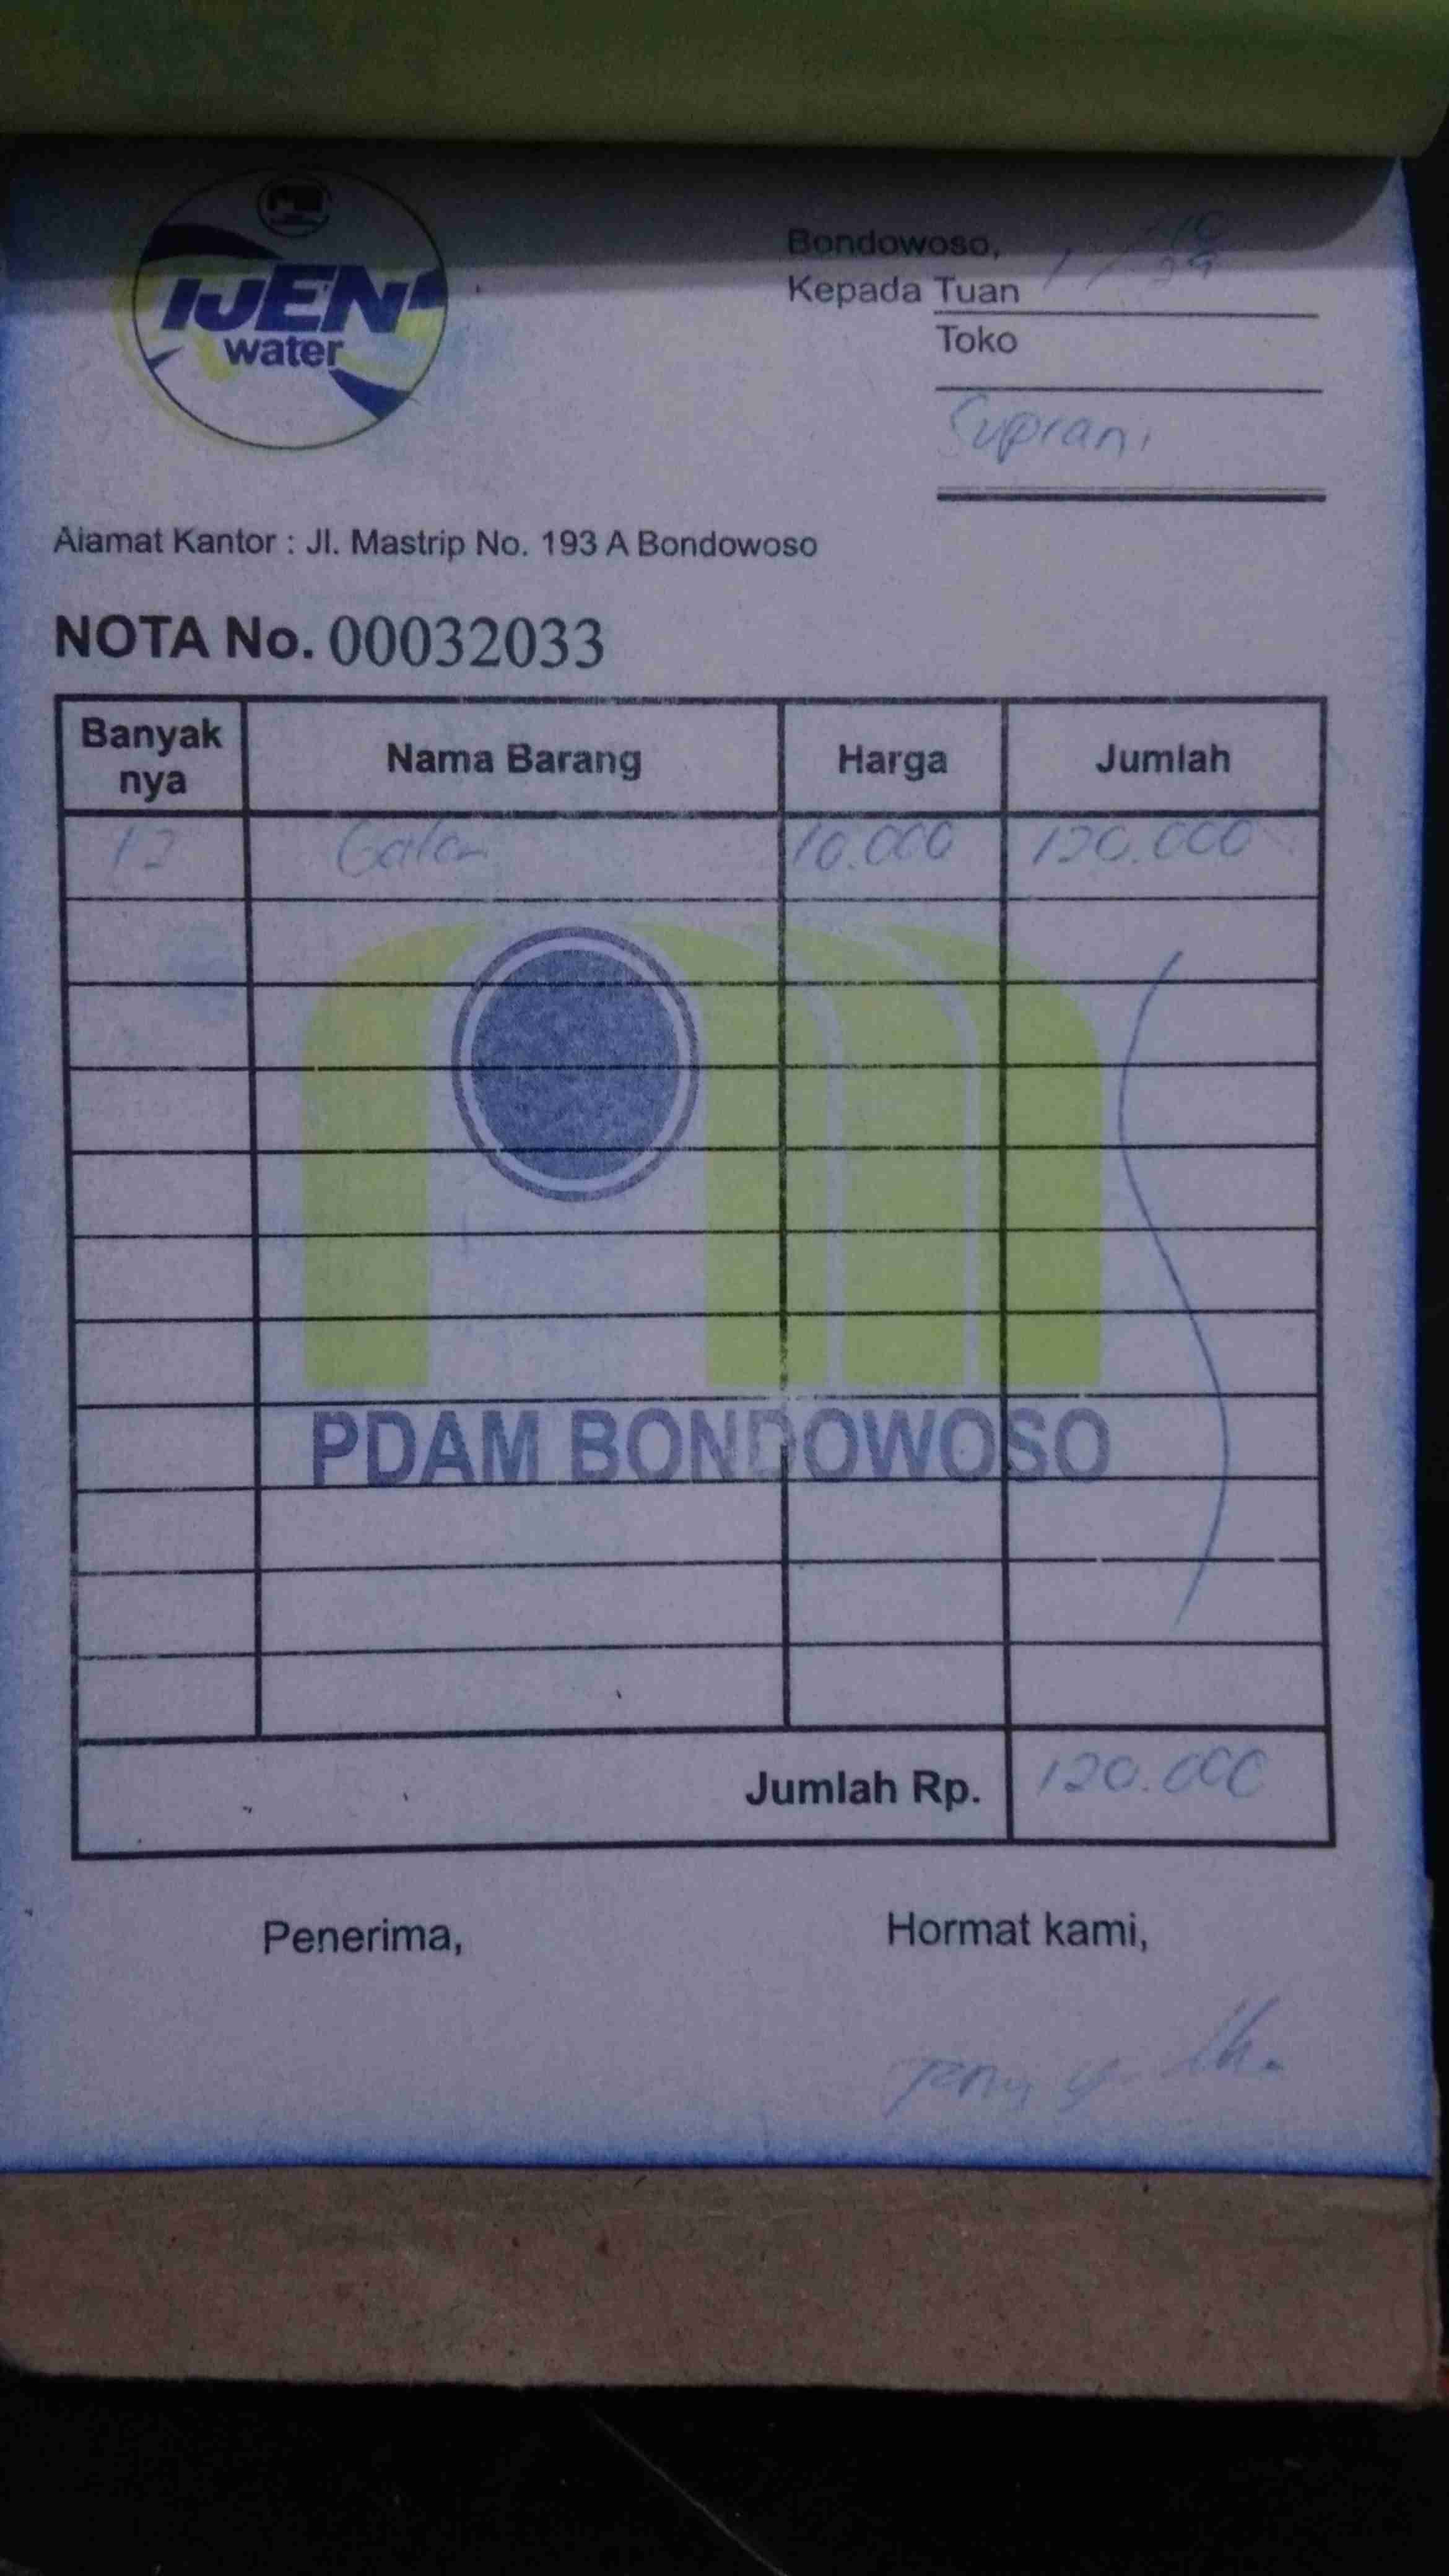 IJEN
water
Bondowoso,
Kepada Tuan
Toko
Suprani
Alamat Kantor : Jl. Mastrip No. 193 A Bondowoso
NOTA No. 00032033
Banyak nya Nama Barang Harga Jumlah
12 Galon 10.000 120.000
PDAM BONDOWOSO
Jumlah Rp. 120.000
Penerima, Hormat kami,